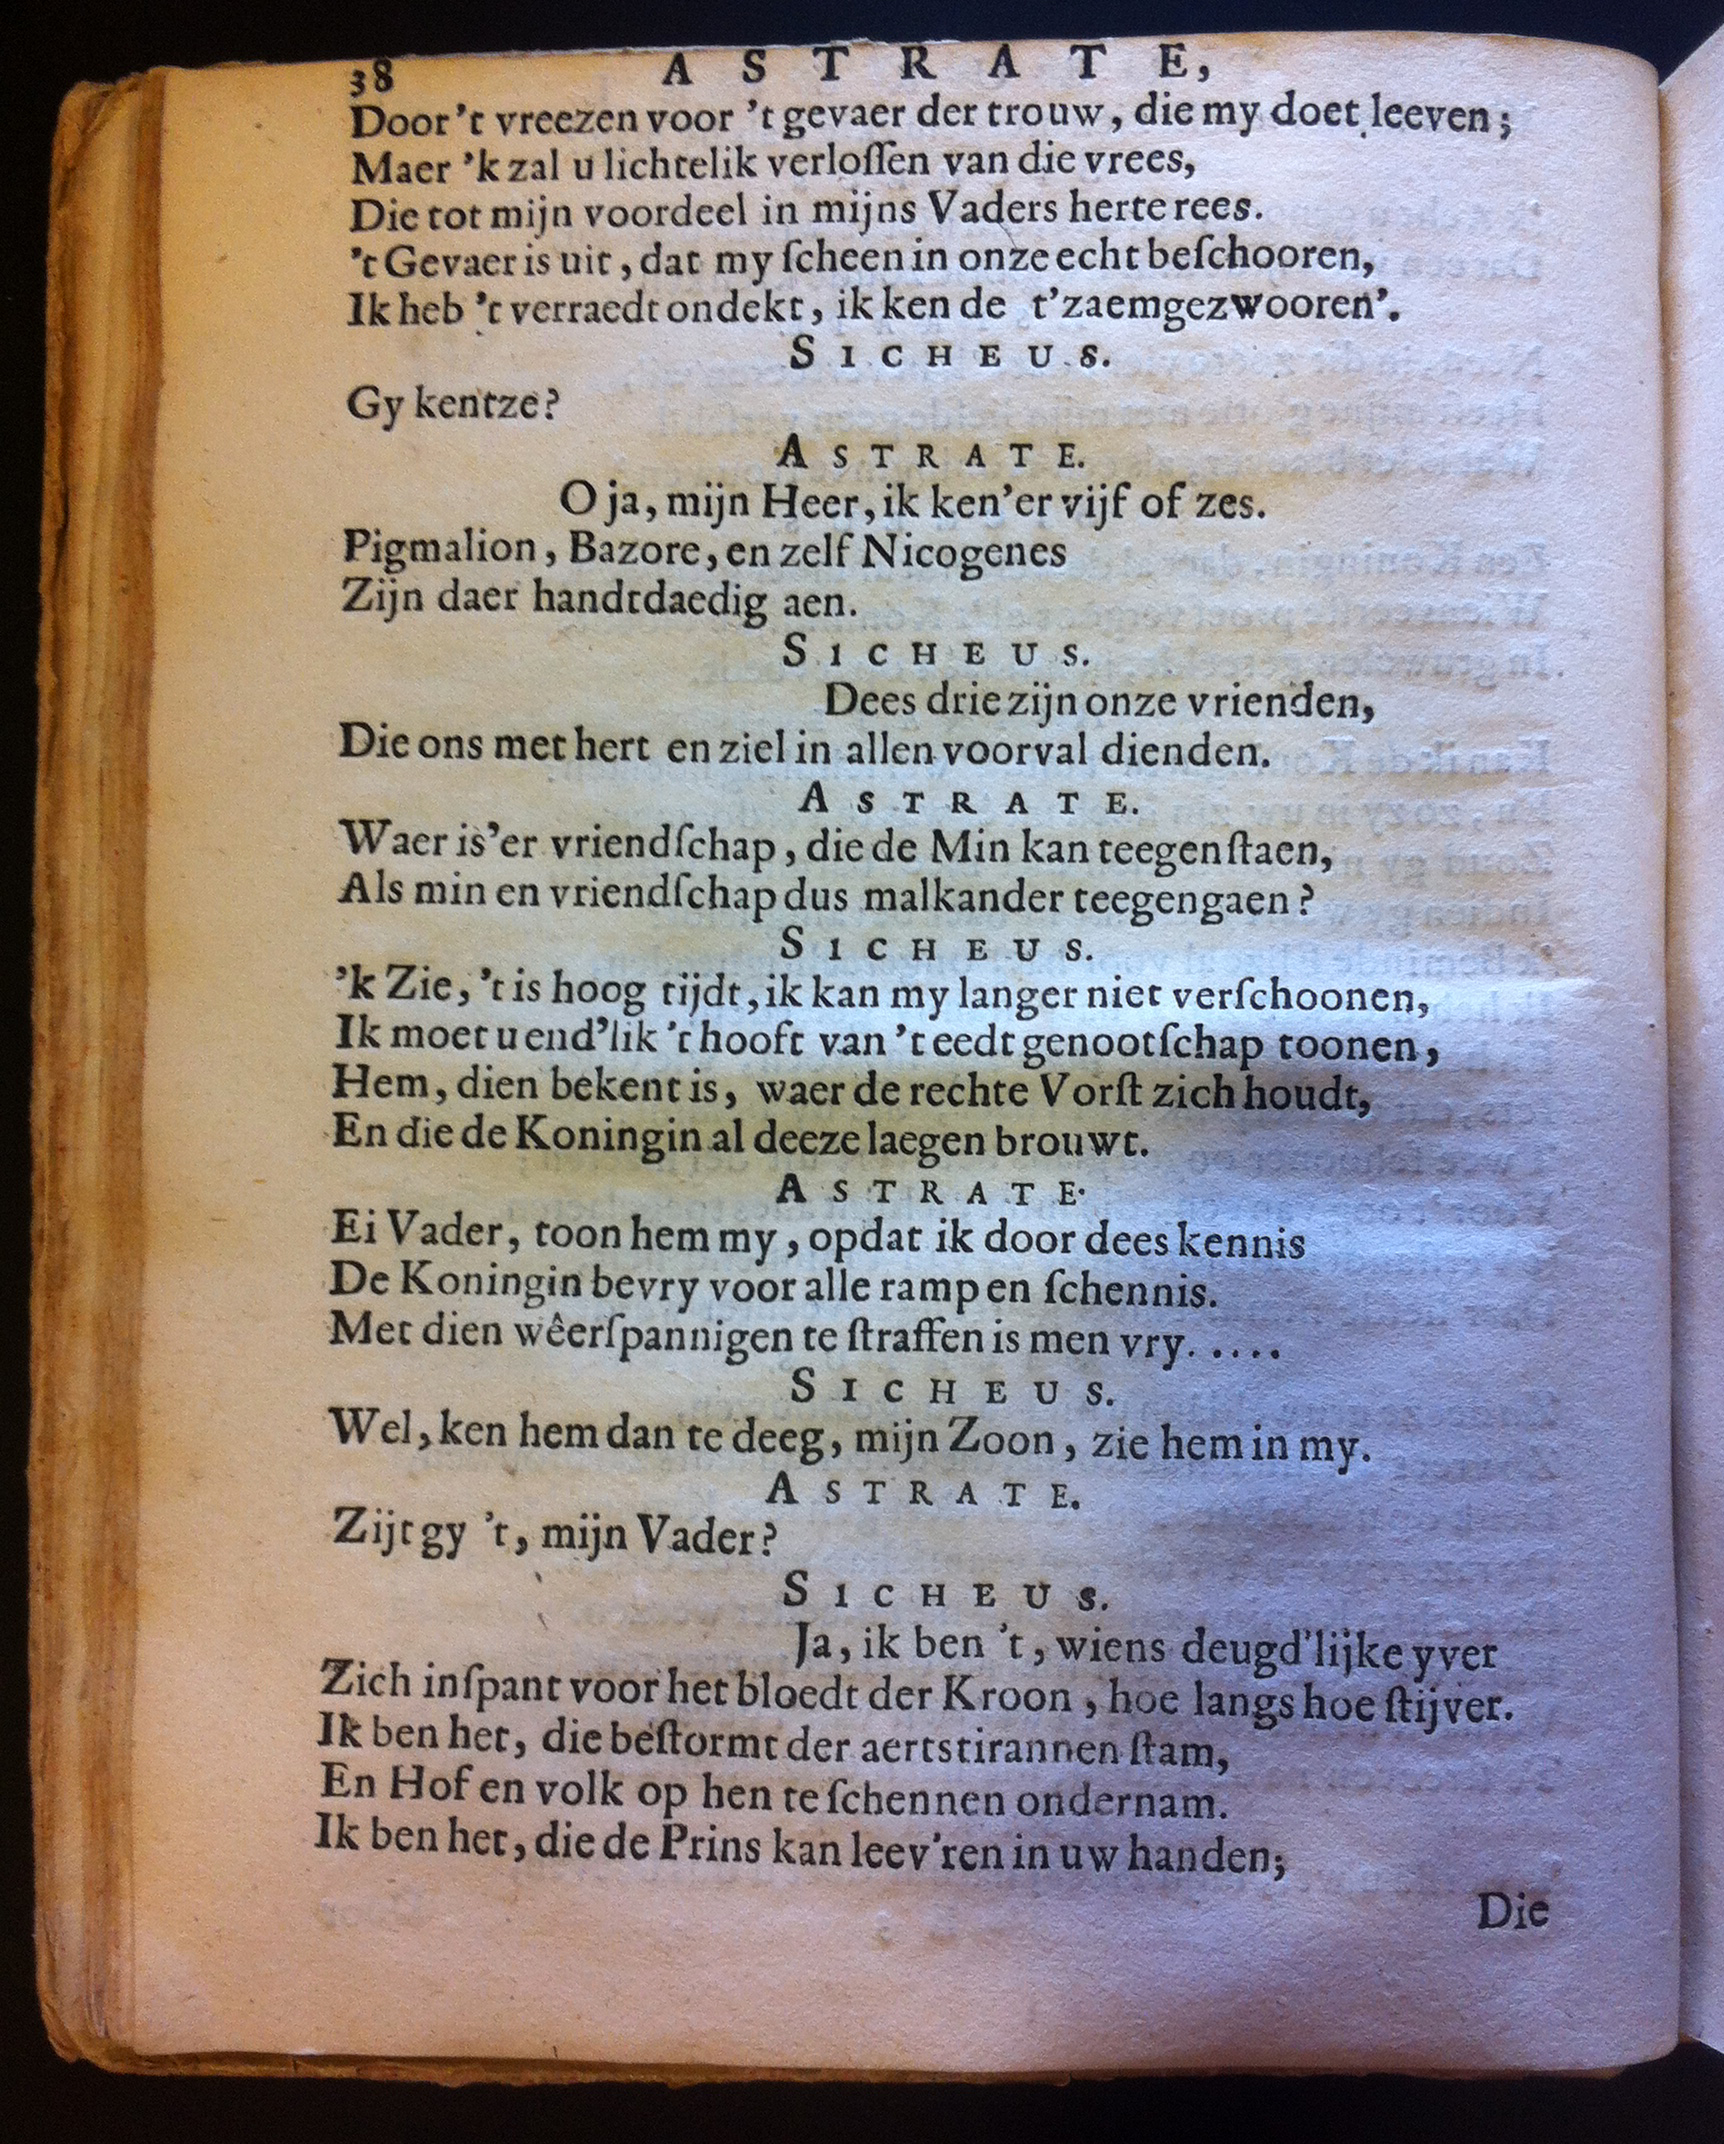 38 ASTRATE,
Door 't vreezen voor 't gevaer der trouw, die my doet leeven;
Maer 'k zal u lichtelik verloſſen van die vrees,
Die tot mijn voordeel in mijns Vaders herte rees.
't Gevaer is uit, dat my ſcheen in onze echt beſchooren,
Ik heb 't verraedt ondekt, ik ken de t'zaemgezwooren'.
SICHEUS.
Gy kentze?
ASTRATE.
O ja, mijn Heer, ik ken'er vijf of zes.
Pigmalion, Bazore, en zelf Nicogenes
Zijn daer handtdaedig aen.
SICHEUS.
Dees drie zijn onze vrienden,
Die ons met hert en ziel in allen voorval dienden.
ASTRATE.
Waer is'er vriendſchap, die de Min kan teegenſtaen,
Als min en vriendſchap dus malkander teegengaen?
SICHEUS.
'k Zie, 't is hoog tijdt, ik kan my langer niet verſchoonen,
Ik moet u end'lik 't hooft van 't eedtgenootſchap toonen,
Hem, dien bekent is, waer de rechte Vorſt zich houdt,
En die de Koningin al deeze laegen brouwt.
ASTRATE.
Ei Vader, toon hem my, opdat ik door dees kennis
De Koningin bevry voor alle ramp en ſchennis.
Met dien wêerſpannigen te ſtraffen is men vry.....
SICHEUS.
Wel, ken hem dan te deeg, mijn Zoon, zie hem in my.
ASTRATE.
Zijt gy 't, mijn Vader?
SICHEUS.
Ja, ik ben 't, wiens deugd'lijke yver
Zich inſpant voor het bloedt der Kroon, hoe langs hoe ſtijver.
Ik ben het, die beſtormt der aertstirannen ſtam,
En Hof en volk op hen te ſchennen ondernam.
Ik ben het, die de Prins kan leev'ren in uw handen;
Die